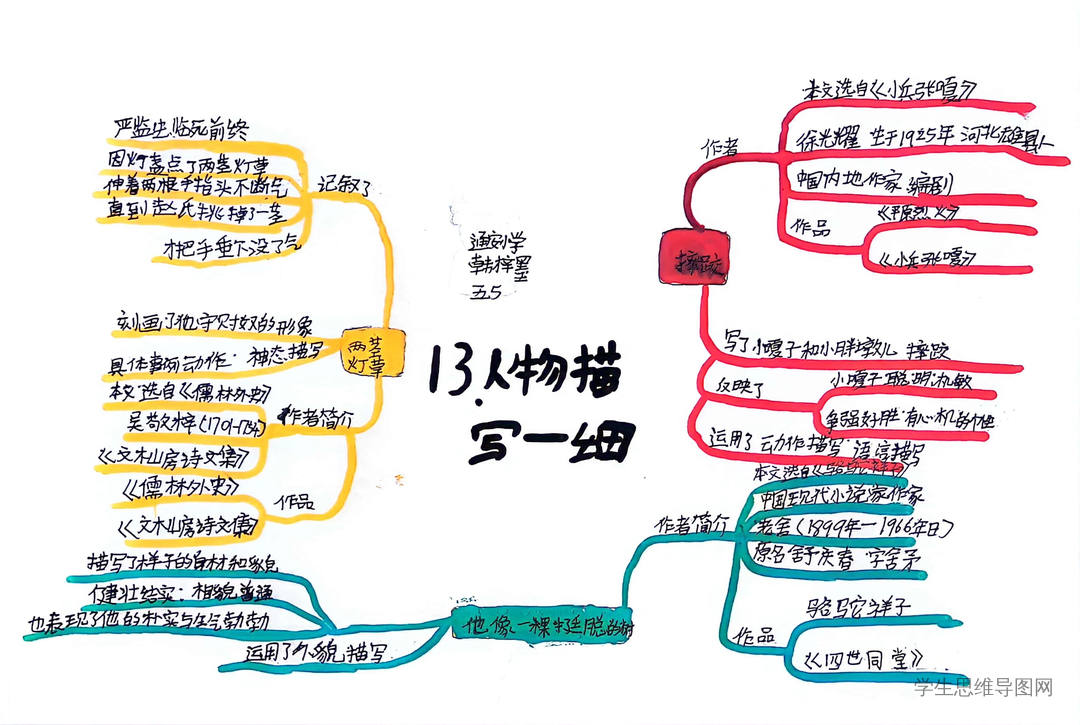 13人物描
写一组
韩梓墨
五5
摔跤
作者
本文选自《小兵张嘎》
徐光耀 生于1925年 河北雄县人
中国内地作家 编剧
作品
《平原烈火》
《小兵张嘎》
写了小嘎子和小胖墩儿 摔跤
反映了
小嘎子聪明机敏
争强好胜·有心机的个性
运用了动作描写·语言描写
他像一棵挺脱的树
作者简介
本文选自《骆驼祥子》
中国现代小说家作家
老舍(1899年—1966年日)
原名舒庆春 字舍予
作品
骆驼祥子
《四世同堂》
描写了祥子的身材和外貌
健壮结实:相貌普通
也表现了他的朴实与生气勃勃
运用了外貌描写
两茎
灯草
记叙了
严监生临死前终
因灯盏点了两茎灯草
伸着两根手指头不断气
直到赵氏挑掉了一茎
才把手垂下没了气
刻画了他守财奴的形象
具体事例动作·神态描写
作者简介
本文选自《儒林外史》
吴敬梓(1701-1754)
《文木山房诗文集》
作品
《儒林外史》
《文木山房诗文集》
学生思维导图网